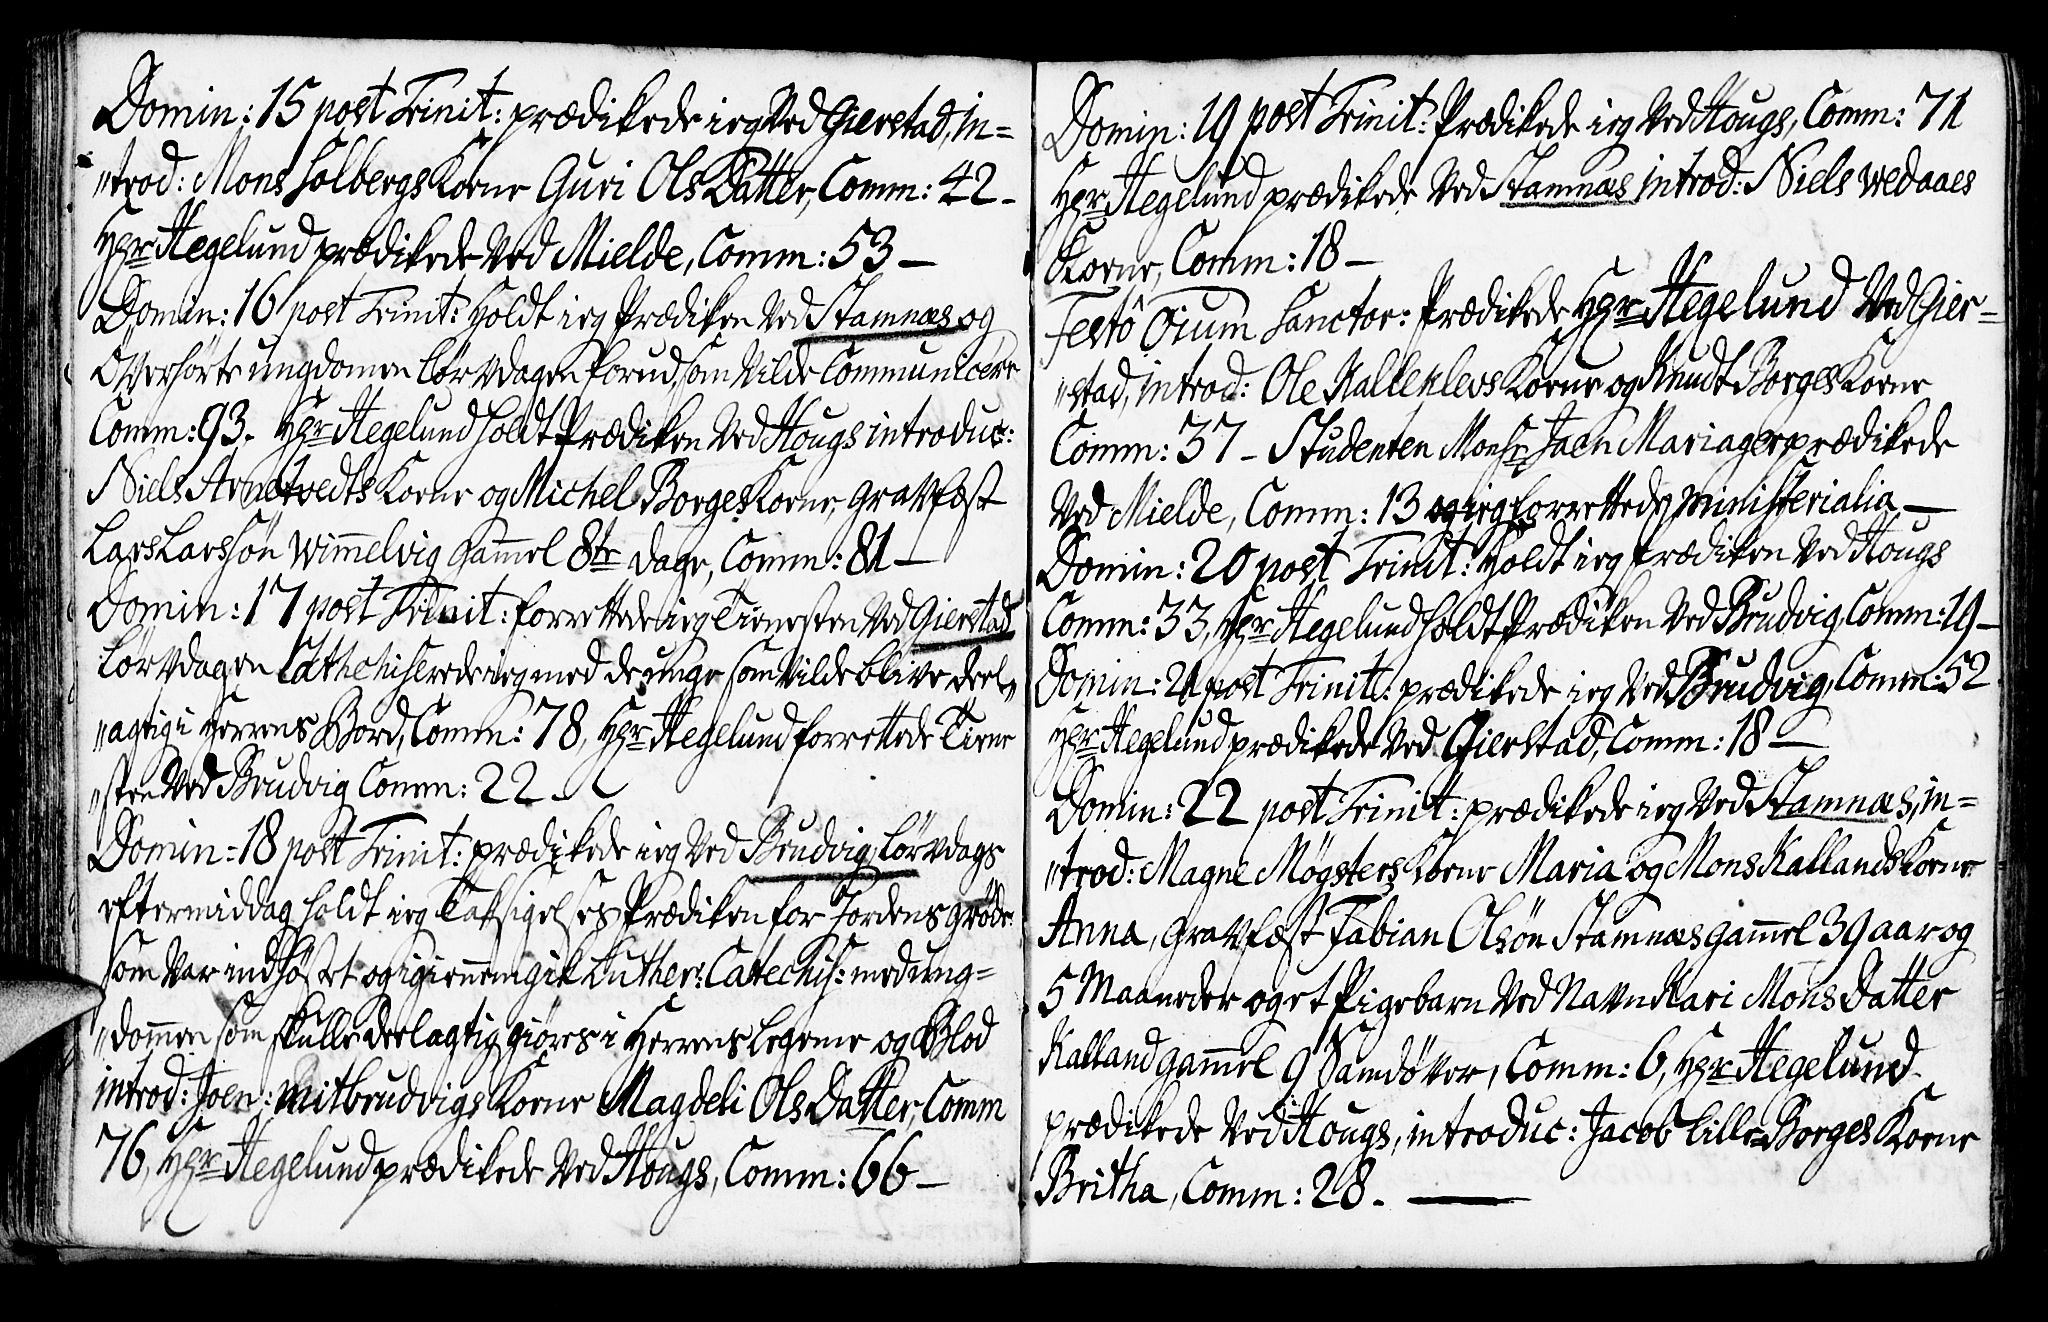 Domin: 15 post Trinit: prædikede ieg Ved Gierstad, in=
"trod: Mons Solbergs Kone Guri Ols Datter, Comm: 42 -
Hgr Hegelund prædikede Ved Mielde, Comm: 53 —
Domin: 16 post Trinit: Holdt ieg Prædiken Ved Stamnæs og
Overhörte ungdomen Lövdagen forud, som Vilde Communicere
Comm: 93. Hgr Hegelund holdt Prædiken Ved Hougs introduc:
Niels Arnetvedts Kone og Michel Borges Kone, gravfæst
Lars Larssön Wimmelvig gammel 8te dage, Comm: 81 —
Domin: 17 post Trinit: forrettede ieg Tienesten Ved Gierstad
Lövdagen Cathechiserede ieg med de unge som Vilde blive deel"
"agtig i Herrens Bord, Comm: 78, Hgr Hegelund forrettede Tiene
"sten Ved Brudvig Comm: 22 -
Domin: 18 post Trinit: prædikede ieg Ved Brudvig, Lövdags
eftermiddag holdt ieg Taksigelses Prædiken for Jordens gröde
som Var indhöstet og igiennemgik Luther: Catechis: med ung=
"dommen som skulle deelagtig giöres i Herrens Legeme og Blod
introd: Joen: Mitbrudvigs Kone Magdeli Ols Datter, Comm
76, Hgr Hegelund prædikede Ved Hougs, Comm: 66 —
Domin: 19 post Trinit: Prædikede ieg Ved Hougs, Comm: 71
Hgr Hegelund prædikede Ved Stamnæs introd: Niels Wedaaes
Kone, Comm: 18 —
Festô Oium Sanctor: Prædikede Hgr Hegelund Ved Gier=
"stad, introd: Ole Kalleklevs Kone og Knudt Borges Kone
Comm: 37 - Studenten Monsr Joen Mariager prædikede
Ved Mielde, Comm: 13 og ieg forrettede ministerialia —
Domin: 20 post Trinit: Holdt ieg prædiken Ved Hougs
Comm: 33, Hgr Hegelund holdt Prædiken Ved Brudvig, Comm: 19 —
Domin: 21 post Trinit: prædikede ieg Ved Brudvig, Comm: 52
Hgr Hegelund prædikede Ved Gierstad, Comm: 18 —
Domin: 22 post Trinit: prædikede ieg Ved Stamnæs, in=
"trod: Magne Mögsters Kone Maria og Mons Kallands Kone
Anna, gravfæst Fabian Olsön Stamnæs gammel 39 aar og
5 Maaneder og et Pigebarn Ved Navn Kari Mons Datter
Kalland gammel 9 Samdöver, Comm: 6, Hgr Hegelund
prædikede Ved Hougs, introduc: Jacob Lille-Borges Kone
Britha, Comm: 28. —